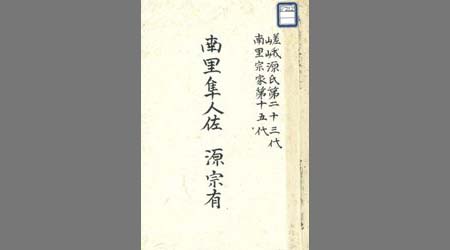 嵯峨源氏第二十三代
南里宗家第十五代
南里隼人佐 源宗有